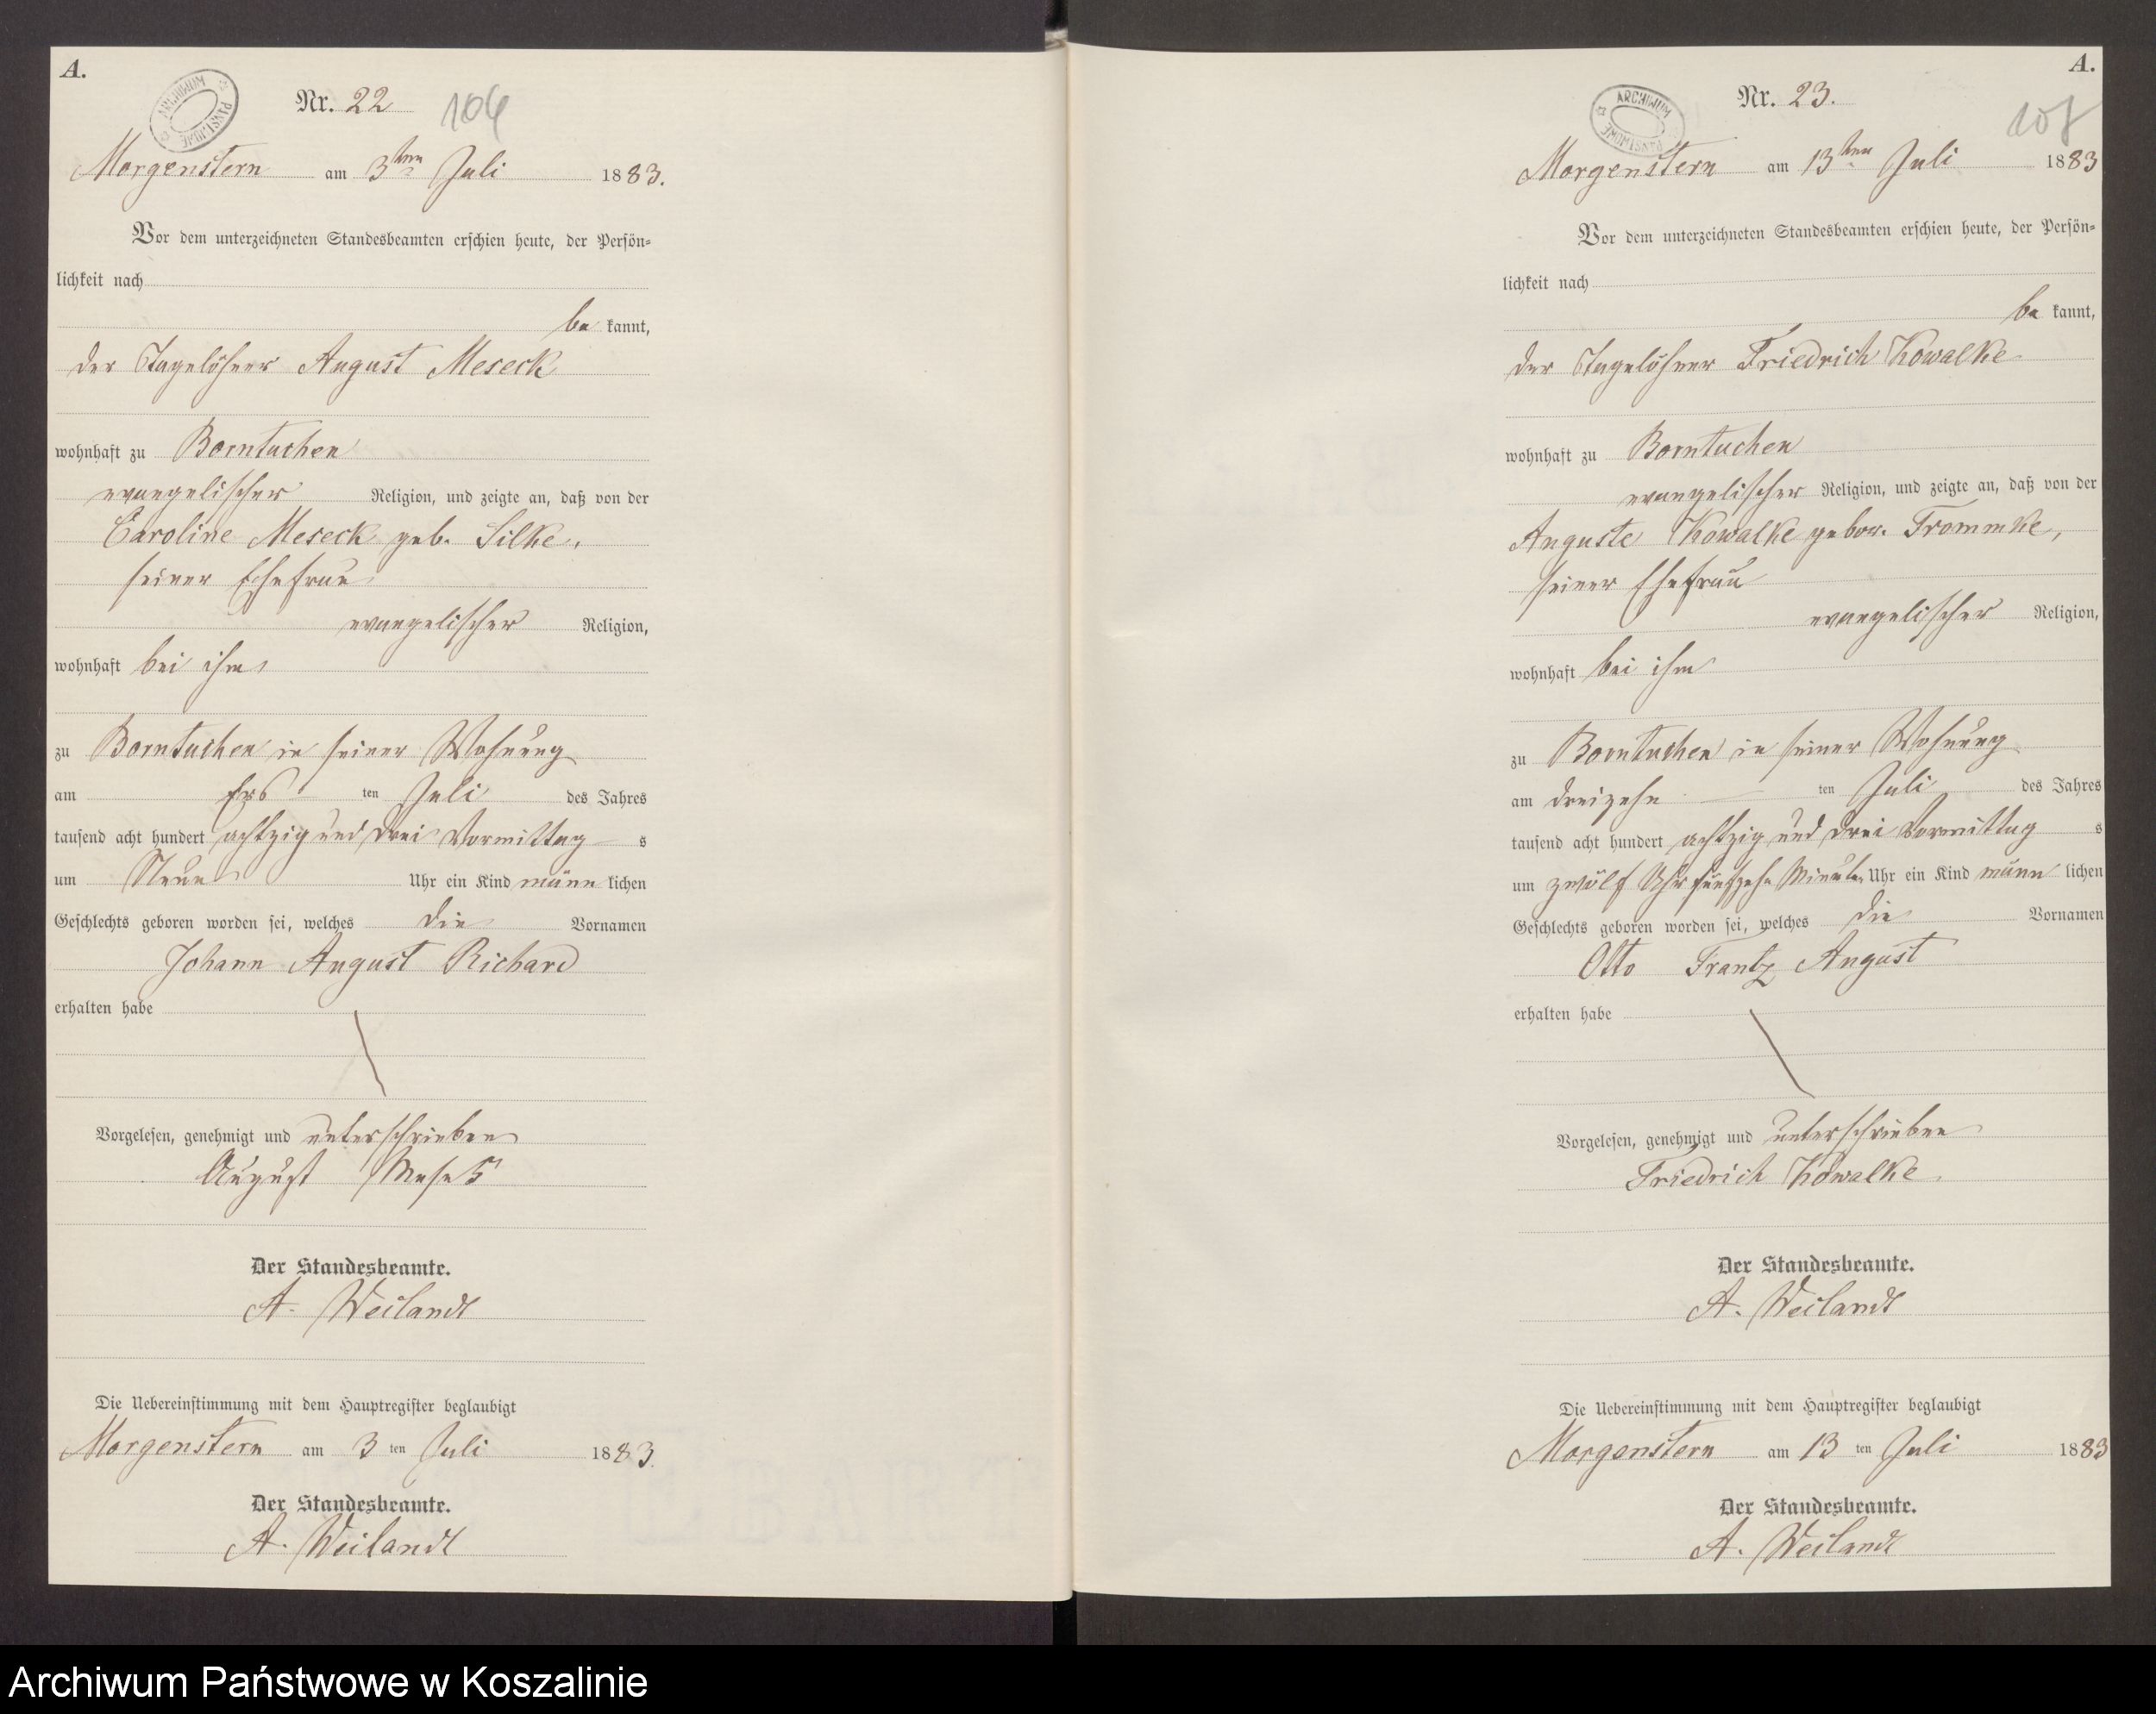 A.
ARCHIWUM PAŃSTWOWE
Nr. 22
Morgenstern am 3ten Juli 1883.
Vor dem unterzeichneten Standesbeamten erschien heute, der Persön-
lichkeit nach
be kannt,
der Tagelöhner August Meseck
wohnhaft zu Borntuchen
evangelischer Religion, und zeigte an, daß von der
Caroline Meseck geb. Silke,
seiner Ehefrau
evangelischer Religion,
wohnhaft bei ihm
zu Borntuchen in seiner Wohnung
am Ers ten Juli des Jahres
tausend acht hundert achtzig und drei Vormittag s
um Neun Uhr ein Kind männ lichen
Geschlechts geboren worden sei, welches die Vornamen
Johann August Richard
erhalten habe
Vorgelesen, genehmigt und unterschrieben
August
Der Standesbeamte.
A. Weilandt
Die Uebereinstimmung mit dem Hauptregister beglaubigt
Morgenstern am 3 ten Juli 1883.
Der Standesbeamte.
A. Weilandt
A.
ARCHIWUM PAŃSTWOWE
Nr. 23.
Morgenstern am 13ten Juli 1883
Vor dem unterzeichneten Standesbeamten erschien heute, der Persön-
lichkeit nach
be kannt,
der Tagelöhner Friedrich Kowalke
wohnhaft zu Borntuchen
evangelischer Religion, und zeigte an, daß von der
Auguste Kowalke gebor. Trommke,
seiner Ehefrau
evangelischer Religion,
wohnhaft bei ihm
zu Borntuchen in seiner Wohnung
am dreizehn ten Juli des Jahres
tausend acht hundert achtzig und drei Vormittag s
um zwölf Uhr fünfzehn Minuten Uhr ein Kind männ lichen
Geschlechts geboren worden sei, welches die Vornamen
Otto Frantz August
erhalten habe
Vorgelesen, genehmigt und unterschrieben
Friedrich Kowalke
Der Standesbeamte.
A. Weilandt
Die Uebereinstimmung mit dem Hauptregister beglaubigt
Morgenstern am 13 ten Juli 1883
Der Standesbeamte.
A. Weilandt
Archiwum Państwowe w Koszalinie